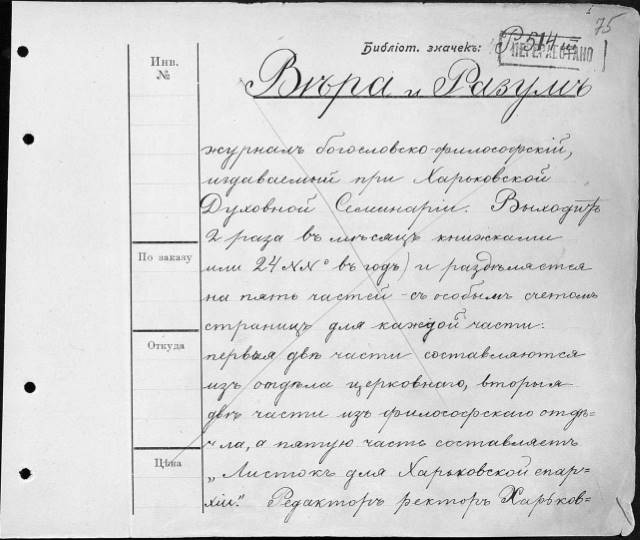 75
Библіот. значек: Р 514 III
ПЕРЕЧЕСТАНО
Инв.
№
Вѣра и Разумъ
журналъ богословско-философскій,
издаваемый при Харьковской
Духовной Семинаріи. Выходитъ
2 раза въ мѣсяцъ книжками
или 24 №№ въ годъ) и раздѣляется
По заказу
на пять частей съ особымъ счетомъ
страницъ для каждой части:
Откуда
первыя двѣ части составляются
изъ отдѣла церковнаго, вторыя
двѣ части изъ философскаго отдѣ=
ла, а пятую часть составляетъ
Цѣна
„Листокъ для Харьковской епар=
хіи“. Редакторъ ректоръ Харьков=